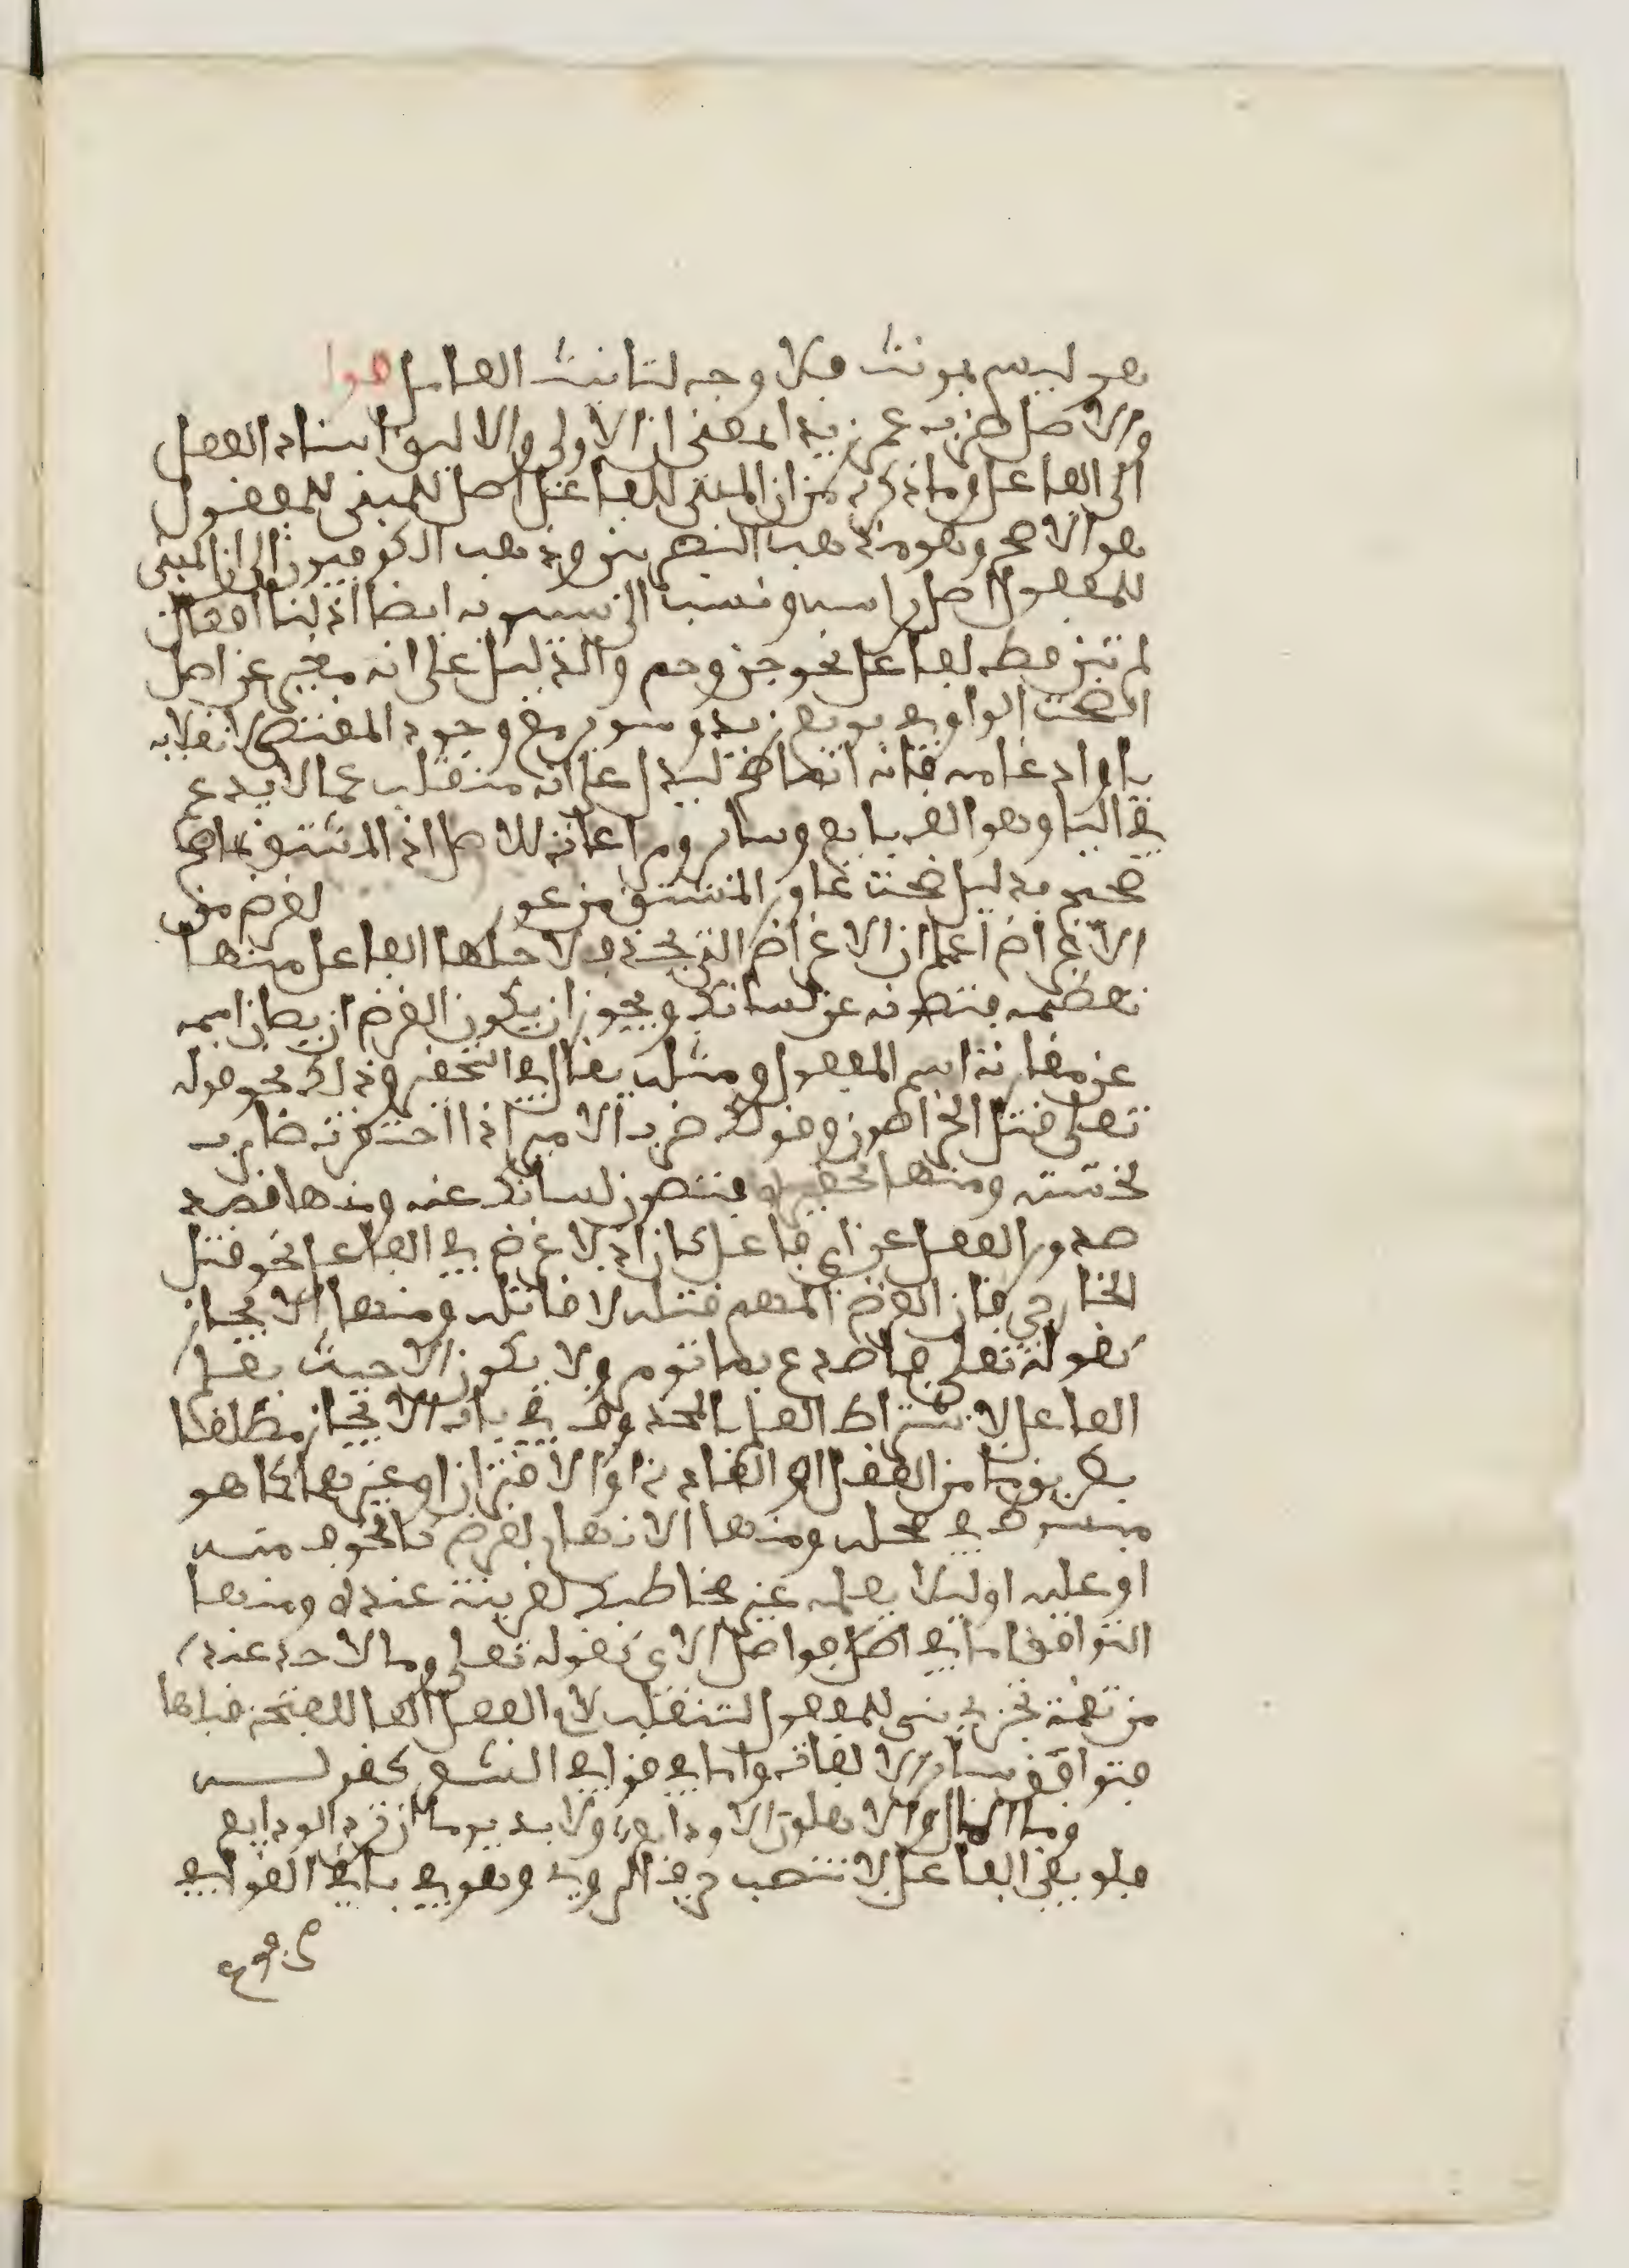 فهو ليس بمونث فلا وجه لتانيث العامل قوله
والاصل ضرب عمر زيد المعنى ان الاولى والاليق اسناد الفعل
الى الفاعل وما ذكره من ان المبني للفاعل اصل للمبني للمفعول
هو الاصح وهو مذهب البصريين وذهب الكوفيون الى ان المبني
للمفعول اصل براسه ونسب الى سيبويه ايضا اذ لنا افعال
لم تبن قط لفاعل نحو جن وحم والدليل على انه مغير عن اصل
الواو في بويع زيد وسوير مع وجود المقتضي لانقلابه
يا وادغامه فانه ليدل على انه منقلب عما لا يدغم
في اليا وهو الف بايع وساير ومراعاة للاصل اذ
صحيح بدليل المشتق من عور لغرض من
الاغراض اعلم ان الاغراض التي يحذف لاجلها الفاعل منها
تعظيمه فتصونه عن لسانك ويجوز ان يكون الغرض ان يصان اسمه
عن مقارنة اسم المفعول ومثله يقال في التحقير وذلك نحو قوله
تعلى قتل الخراصون وقولك ضرب الامير اذا احتقرت ضاربه
لخسته ومنها تحقيره فتصون لسانك عنه ومنها قصد
صدور الفعل عن اي فاعل كان اذ لا غرض في الفاعل نحو قتل
الخارجي فان الغرض المهم قتله لا قاتله ومنها الايجاز
كقوله تعلى فاصدع بما تومر ولا يكون الا حيث يعلم
الفاعل لاشتراط العلم بالمحذوف في باب الايجاز مطلقا
بطريق ما من العقل او العادة او الاقتران او غيرها كما هو
مبسوط في محله ومنها الابهام لغرض كالخوف منه
او عليه او ليلا يعلمه غير مخاطبك لقرينة عنده ومنها
التوافق اما في اصل فواصل الاي كقوله تعلى وما لاحد عنده
من نعمة تجزى بني للمفعول لتنقلب لام الفعل الفا للفتحة قبلها
فتوافق ساير الفاته واما في قوافي الشعر كقولـــه
وما المال والاهلون الا ودايع ولا بد يوما ان ترد الودايع
فلو بقي الفاعل لانتصب حرف الروي وهو في باقي القوافي
مرفوع